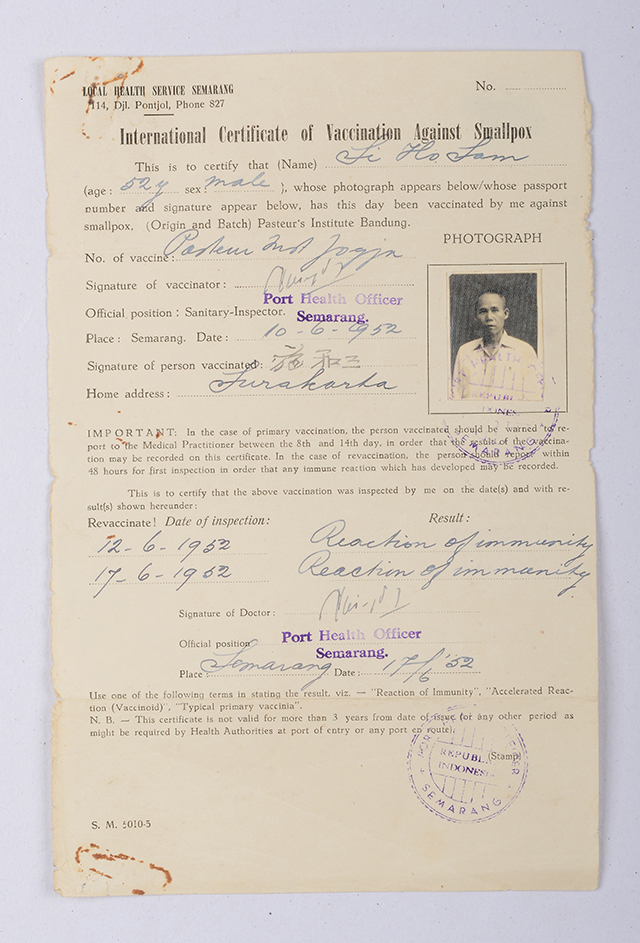 LOCAL HEALTH SERVICE SEMARANG
114, Djl. Pontjol, Phone 827
No. ....................
International Certificate of Vaccination Against Smallpox
This is to certify that (Name) Si Ho Sam
(age: 52 y sex: male ), whose photograph appears below/whose passport
number and signature appear below, has this day been vaccinated by me against
smallpox. (Origin and Batch) Pasteur's Institute Bandung.
PHOTOGRAPH
No. of vaccine: Pasteur Inst Jogja
Signature of vaccinator:
Port Health Officer
Official position: Sanitary-Inspector. Semarang.
Place: Semarang. Date: 10-6-1952
Signature of person vaccinated: 施和三
Home address: Surakarta
IMPORTANT: In the case of primary vaccination, the person vaccinated should be warned to re-
port to the Medical Practitioner between the 8th and 14th day, in order that the result of the vaccina-
tion may be recorded on this certificate. In the case of revaccination, the person should report within
48 hours for first inspection in order that any immune reaction which has developed may be recorded.
This is to certify that the above vaccination was inspected by me on the date(s) and with re-
sult(s) shown hereunder:
Revaccinate! Date of inspection: Result:
12-6-1952 Reaction of immunity
17-6-1952 Reaction of immunity
Signature of Doctor:
Official position Port Health Officer
Semarang.
Place: Semarang Date: 17/6 '52
Use one of the following terms in stating the result. viz. — "Reaction of Immunity", "Accelerated Reac-
tion (Vaccinoid)", "Typical primary vaccinia".
N. B. — This certificate is not valid for more than 3 years from date of issue (or any other period as
might be required by Health Authorities at port of entry or any port en route).
(Stamp)
REPUBL.
INDONESIA
SEMARANG
S. M. 5010-5